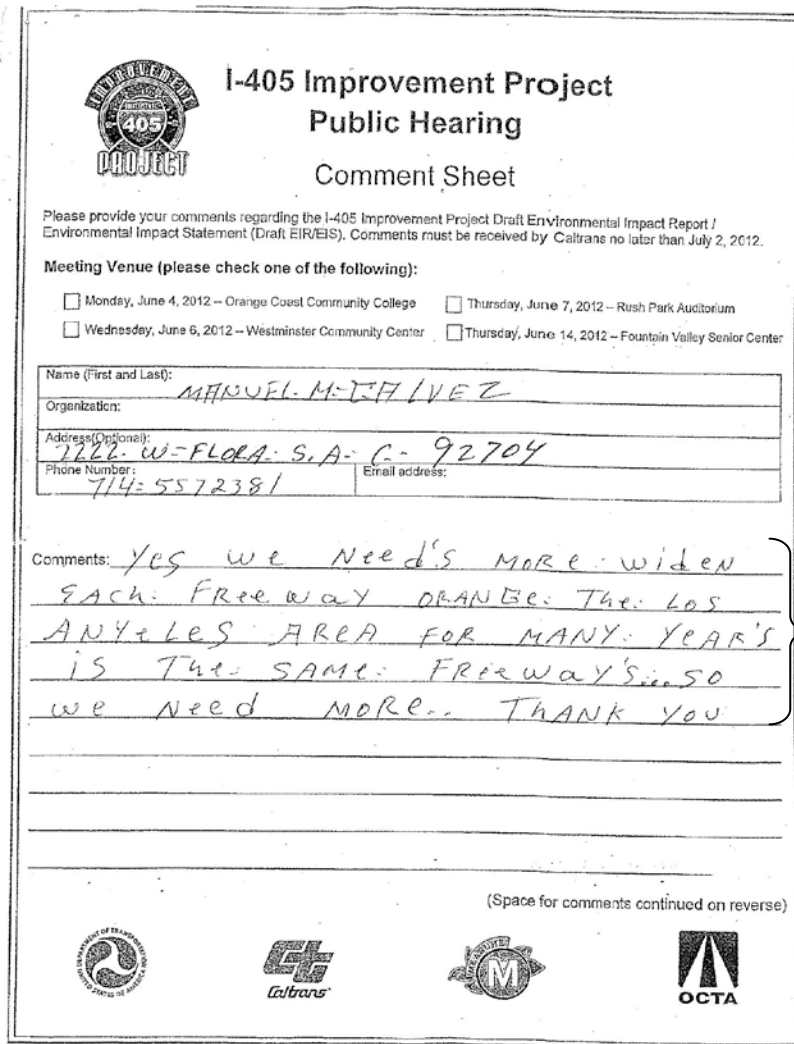 IMPROVEMENT
405
PROJECT
I-405 Improvement Project
Public Hearing
Comment Sheet
Please provide your comments regarding the I-405 Improvement Project Draft Environmental Impact Report /
Environmental Impact Statement (Draft EIR/EIS). Comments must be received by Caltrans no later than July 2, 2012.
Meeting Venue (please check one of the following):
Monday, June 4, 2012 – Orange Coast Community College
Thursday, June 7, 2012 – Rush Park Auditorium
Wednesday, June 6, 2012 – Westminster Community Center
Thursday, June 14, 2012 – Fountain Valley Senior Center
Name (First and Last): MANUEL
Organization:
Address(Optional): W-FLORA- S.A- C-- 92704
Phone Number: 714-5572381
Email address:
Comments: Yes we Need's MORe. widen
EACh. FReewaY ORANGe. The. LOS
ANYeLeS AREA FOR MANY. YeAR'S
iS The. SAMe. FReewaY'S... SO
we Need MORe.. ThANK YOU
(Space for comments continued on reverse)
DEPARTMENT OF TRANSPORTATION
UNITED STATES OF AMERICA
Caltrans
MEASURE
M
OCTA